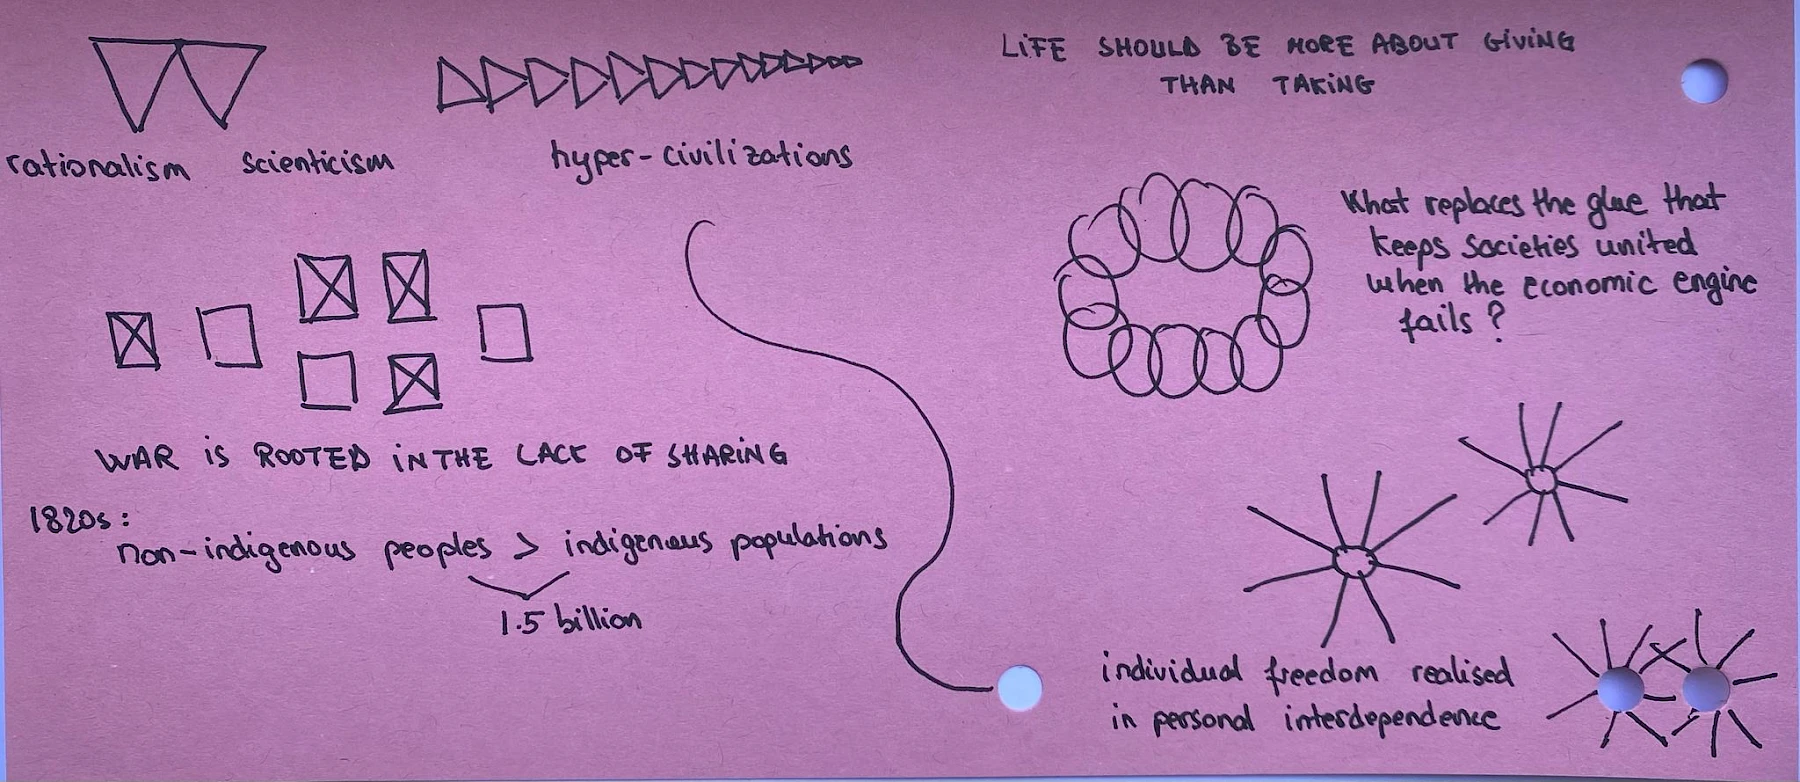 rationalism scienticism
hyper-civilizations
LIFE SHOULD BE MORE ABOUT GIVING
THAN TAKING
What replaces the glue that
keeps societies united
when the economic engine
fails?
WAR IS ROOTED IN THE LACK OF SHARING
1820s:
non-indigenous peoples > indigenous populations
1.5 billion
individual freedom realised
in personal interdependence